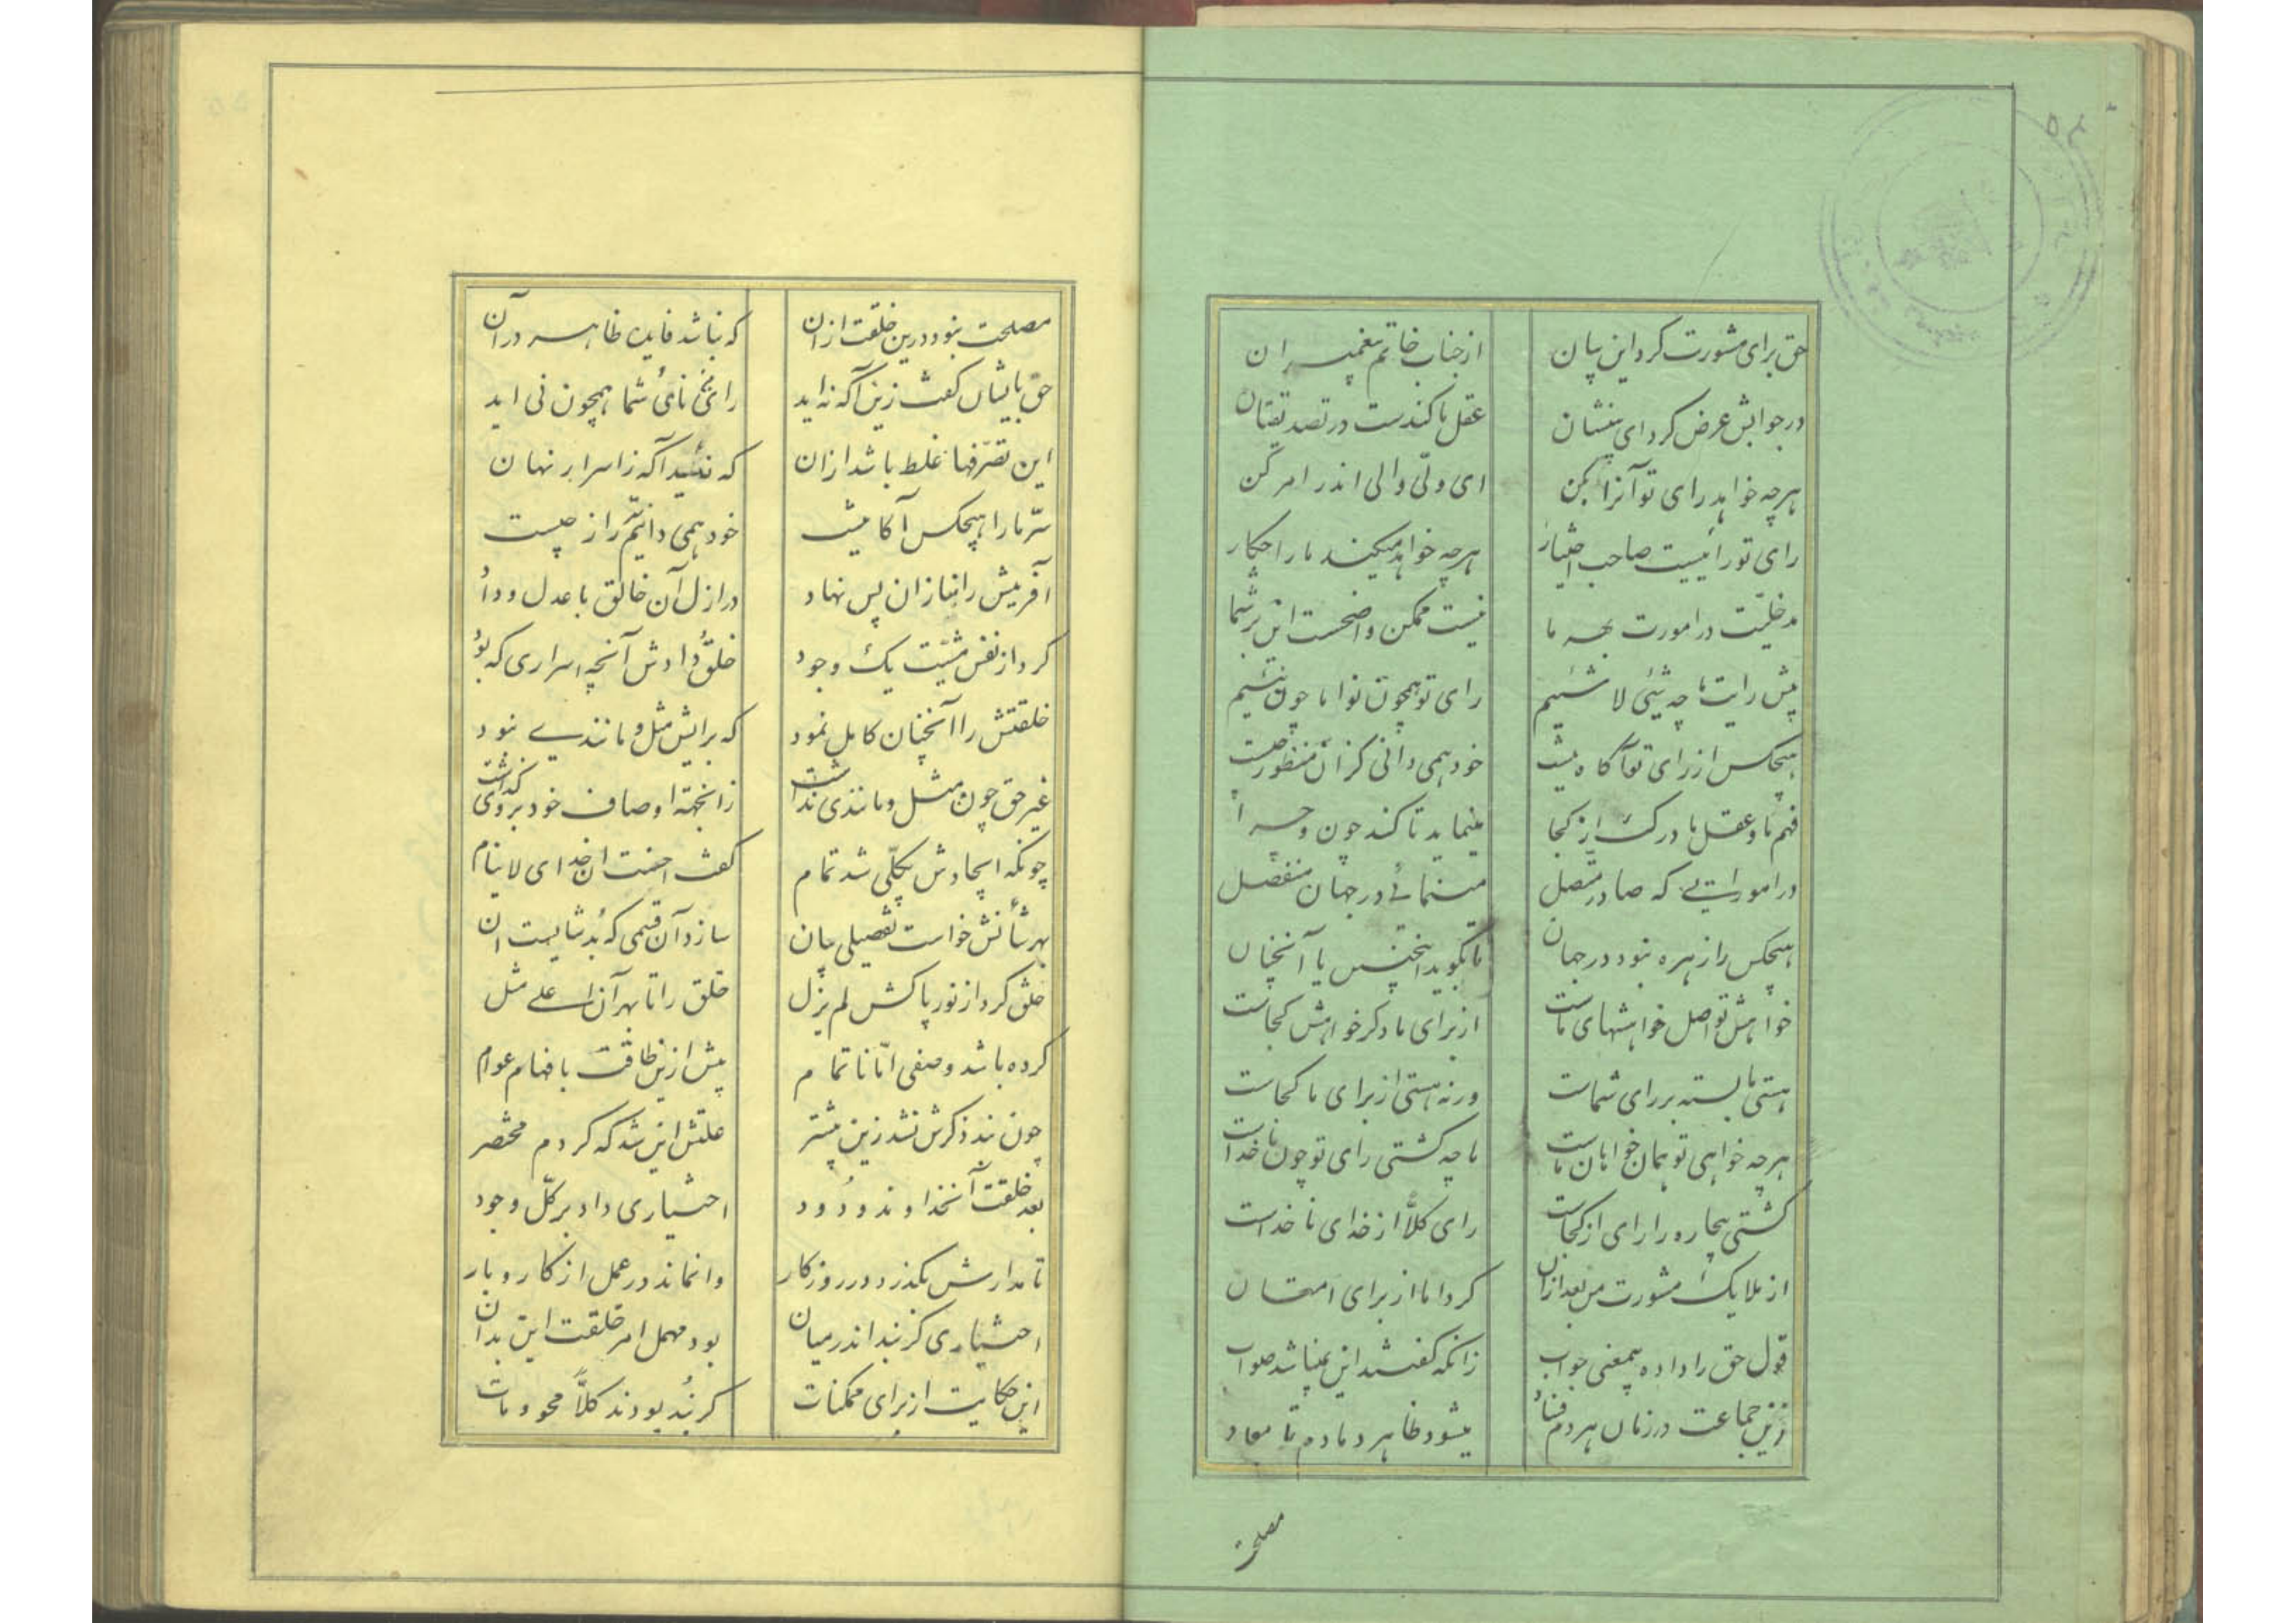 حق برای مشورت کرد این بیان از جناب خاتم پیغمبران
در جوابش عرض کرد ای بینشان عقل ما کندست در تصدیقتان
هرچه خواهد رای تو آنرا بکن ای ولی والی اندر امر کن
رای تو رائیست صاحب اختیار هرچه خواهد میکند ما را چکار
مدخلیت در امورت بهر ما نیست ممکن واضحست این بر شما
پیش رایت ما چه شیئی لا شئیم رای تو همچون نوا ما چون نئیم
هیچکس از رای تو آگاه نیست خود همی دانی کزان منظور چیست
فهم ما و عقل ما درکش از کجا مینماید تا کند چون و چرا
در اموراتی که صادر متصل مینمائی در جهان منفصل
هیچکس را زهره نبود در جهان تا بگوید اینچنین یا آنچنان
خواهش تو اصل خواهشهای ماست از برای ما دگر خواهش کجاست
هستی ما بسته بر رای شماست ورنه هستی از برای ما کجاست
هرچه خواهی تو همان خواهان ماست ما چه کشتی رای تو چون ناخداست
کشتی بیچاره را رای از کجاست رای کلاً از خدای ناخداست
از ملایک مشورت من بعد ازان کرد اما از برای امتحان
قول حق را داده بیمعنی جواب زانکه گفتند این نمیباشد صواب
زین جماعت در زمان هر دم فساد میشود ظاهر دمادم تا معاد
مصلحت
مصلحت نبود درین خلقت ازان که نباشد فایده ظاهر در آن
حق بایشان گفت زین آگه نه‌اید رای نائی شما همچون نی اید
این تصرفها غلط باشد ازان که نئید آگه ز اسرار نهان
سرّ ما را هیچکس آگاه نیست خود همی دانیم راز چیست
آفرینش را بنا زان پس نهاد در ازل آن خالق با عدل و داد
کرد از نفس مشیّت یک وجود خلق و دادش آنچه اسراری که بود
خلقتش را آنچنان کامل نمود که برایش مثل و مانندی نبود
غیر حق چون مثل و مانندی نداشت زانجهة اوصاف خود بروی گذاشت
چونکه ایجادش بکلّی شد تمام گفت احسنت آن خدای لاینام
بهر شأنش خواست تفصیلی بیان سازد آن قسمی که بد شایست ان
خلق کرد از نور پاکش لم یزل خلق را تا بهر آن اعلی مثل
کرده باشد وصفی امّا ناتمام بیش ازین طاقت بافهام عوام
چون نبد ذکرش نشد زین بیشتر علتش این شد که کردم مختصر
بعد خلقت آنخداوند ودود اختیاری داد بر کلّ وجود
تا مدارش بگذرد در روزگار وانماند در عمل از کار و بار
اختیاری گر نبد اندر میان بود مهمل امر خلقت این بدان
این حکایت از برای ممکنات گر نبُد بودند کلاً محو و مات